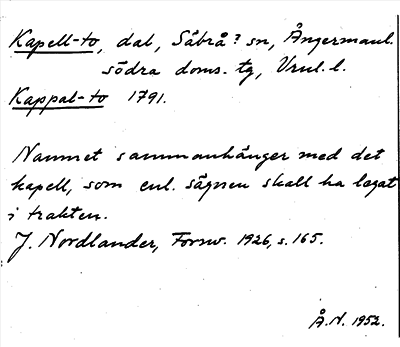 Kapell-to, dal, Säbrå? sn, Ångermanl.
södra doms. tg, Vnl. l.
Kappal-to 1791.
Namnet sammanhänger med det
kapell, som enl. sägnen skall ha legat
i trakten.
J. Nordlander, Fornv. 1926, s. 165.
Å.N. 1952.